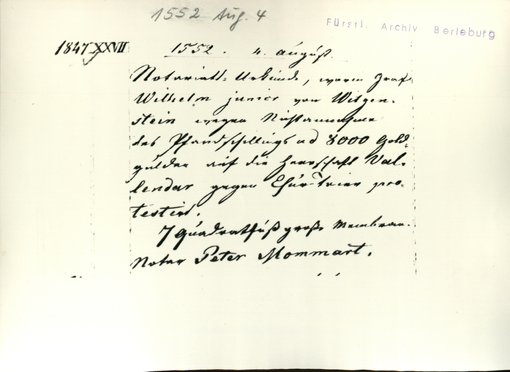 1552 Aug. 4
Fürstl. Archiv Berleburg
1847 XXVII
1552. 4. August.
Notariats-Urkunde, worin Graf
Wilhelm junior von Witgen-
stein wegen Nichtannahme
des Pfandschillings ad 8000 Gold-
gulden auf die Herrschaft Val-
lendar gegen Chur-Trier pro-
testirt.
7 Quadratfuß große Membran.
Notar Peter Mommart.